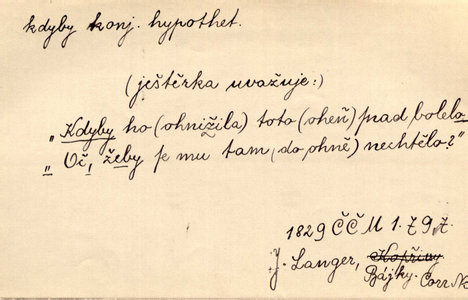 kdyby konj. hypothet.
(ještěrka uvažuje:)
„Kdyby ho (ohnižila) toto (oheň) snad bolelo
„Oč, žeby se mu tam (do ohně) nechtělo?"
1829 ČČM 1. 79,
J. Langer, Kopřivy
Bájky. Corr